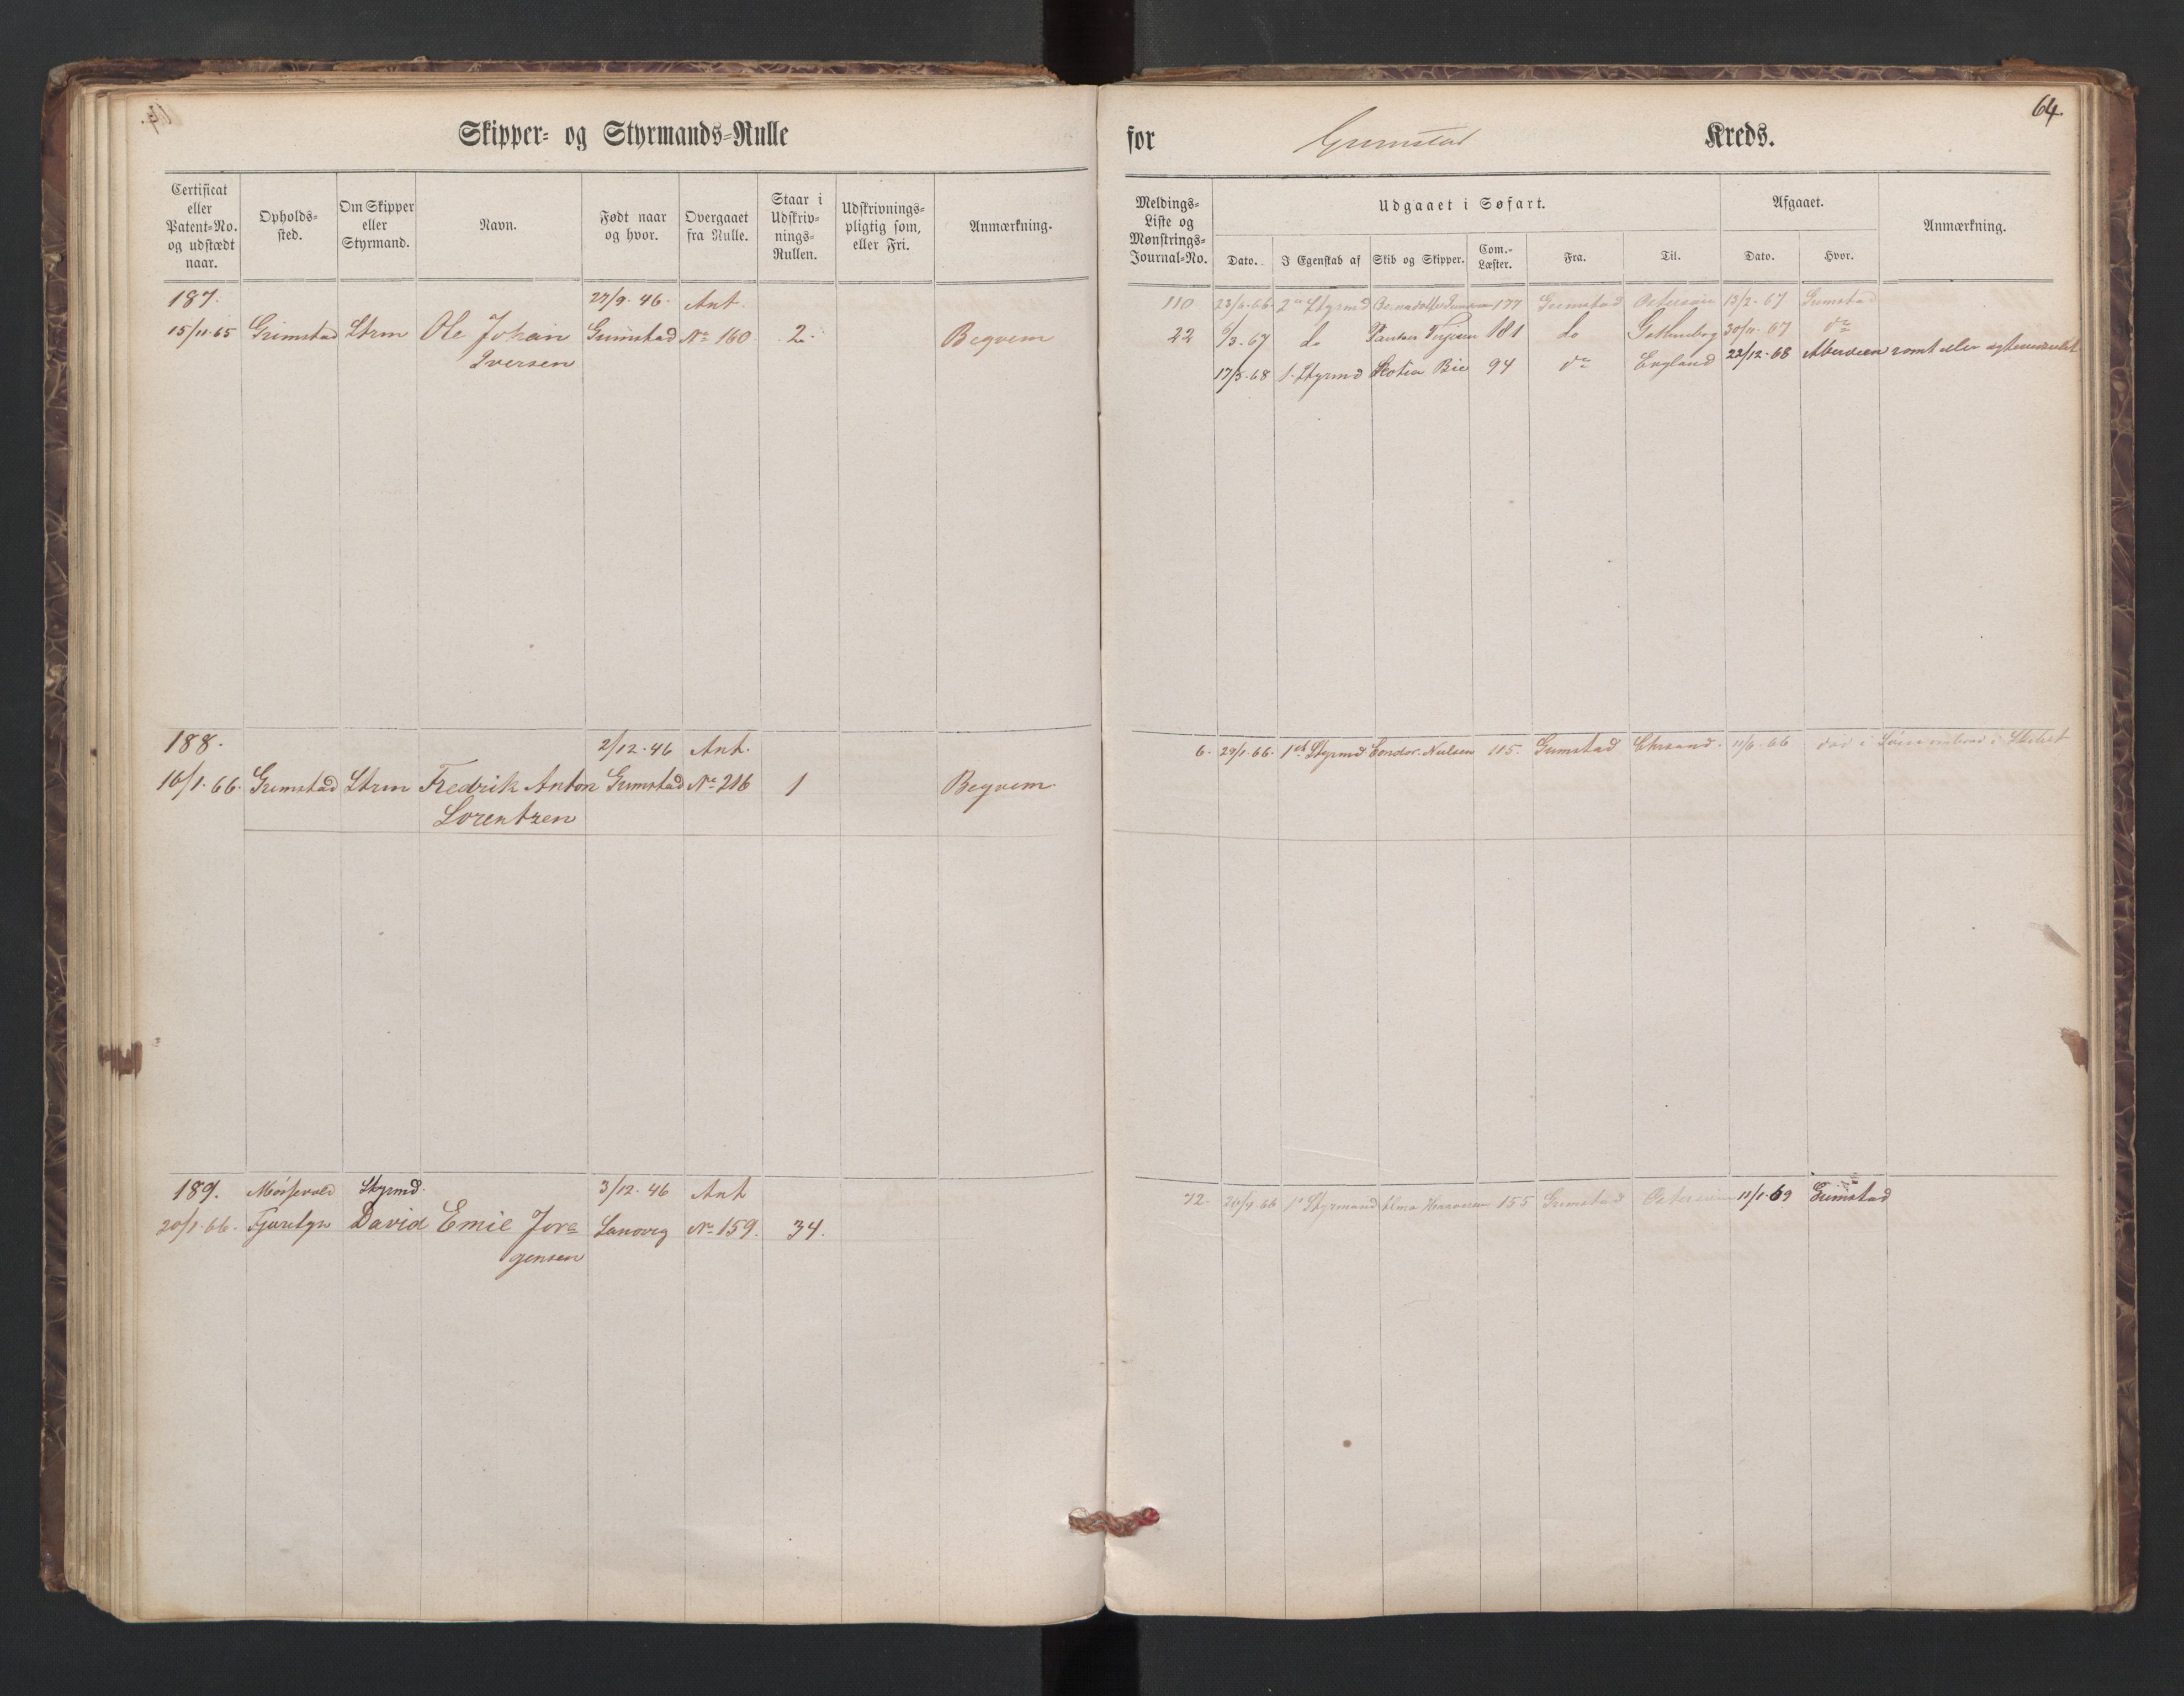 Skipper- og Styrmands-Rulle
Certificat eller Patent-No. og udstædt naar.
Opholds-sted.
Om Skipper eller Styrmand.
Navn.
Født naar og hvor.
Overgaaet fra Rulle.
Staar i Udskriv-nings-Rullen.
Udskrivnings-pligtig som, eller Fri.
Anmærkning.
187. 27/9. 46. Ant.
15/11. 65 Grimstad Strm Ole Johan Grimstad No 160 2. Begvem
Iversen
188. 2/12. 46 Ant.
16/1. 66. Grimstad Strm Fredrik Anton Grimstad No 216 1 Begvem.
Lorentzen
189. Styrmd. 3/12. 46 Ant
20/1. 66. David Emil Jør- Landvig No 159. 34.
gensen
for Grimstad Kreds.
64.
Meldings-Liste og Mønstrings-Journal-No.
Udgaaet i Søfart.
Dato. I Egenskab af Skib og Skipper. Com.-Læster. Fra. Til.
Afgaaet.
Dato. Hvor.
Anmærkning.
110 23/6. 66 2den Styrmd 177 Grimstad Østersøen 13/2. 67 Grimstad
22 6/3. 67 do 181 do Gothenborg 30/11. 67 do
17/3. 68 1. Styrmd Scotia Bie 94 do England 22/12. 68 Aberdeen
6. 29/1. 66. 1st Styrmd Condor. Nielsen 115. Grimstad Chrsand. 11/6. 66
72 20/4. 66 1e Styrmand Alma 155 Grimstad Østersøen 11/1. 69 Grimstad